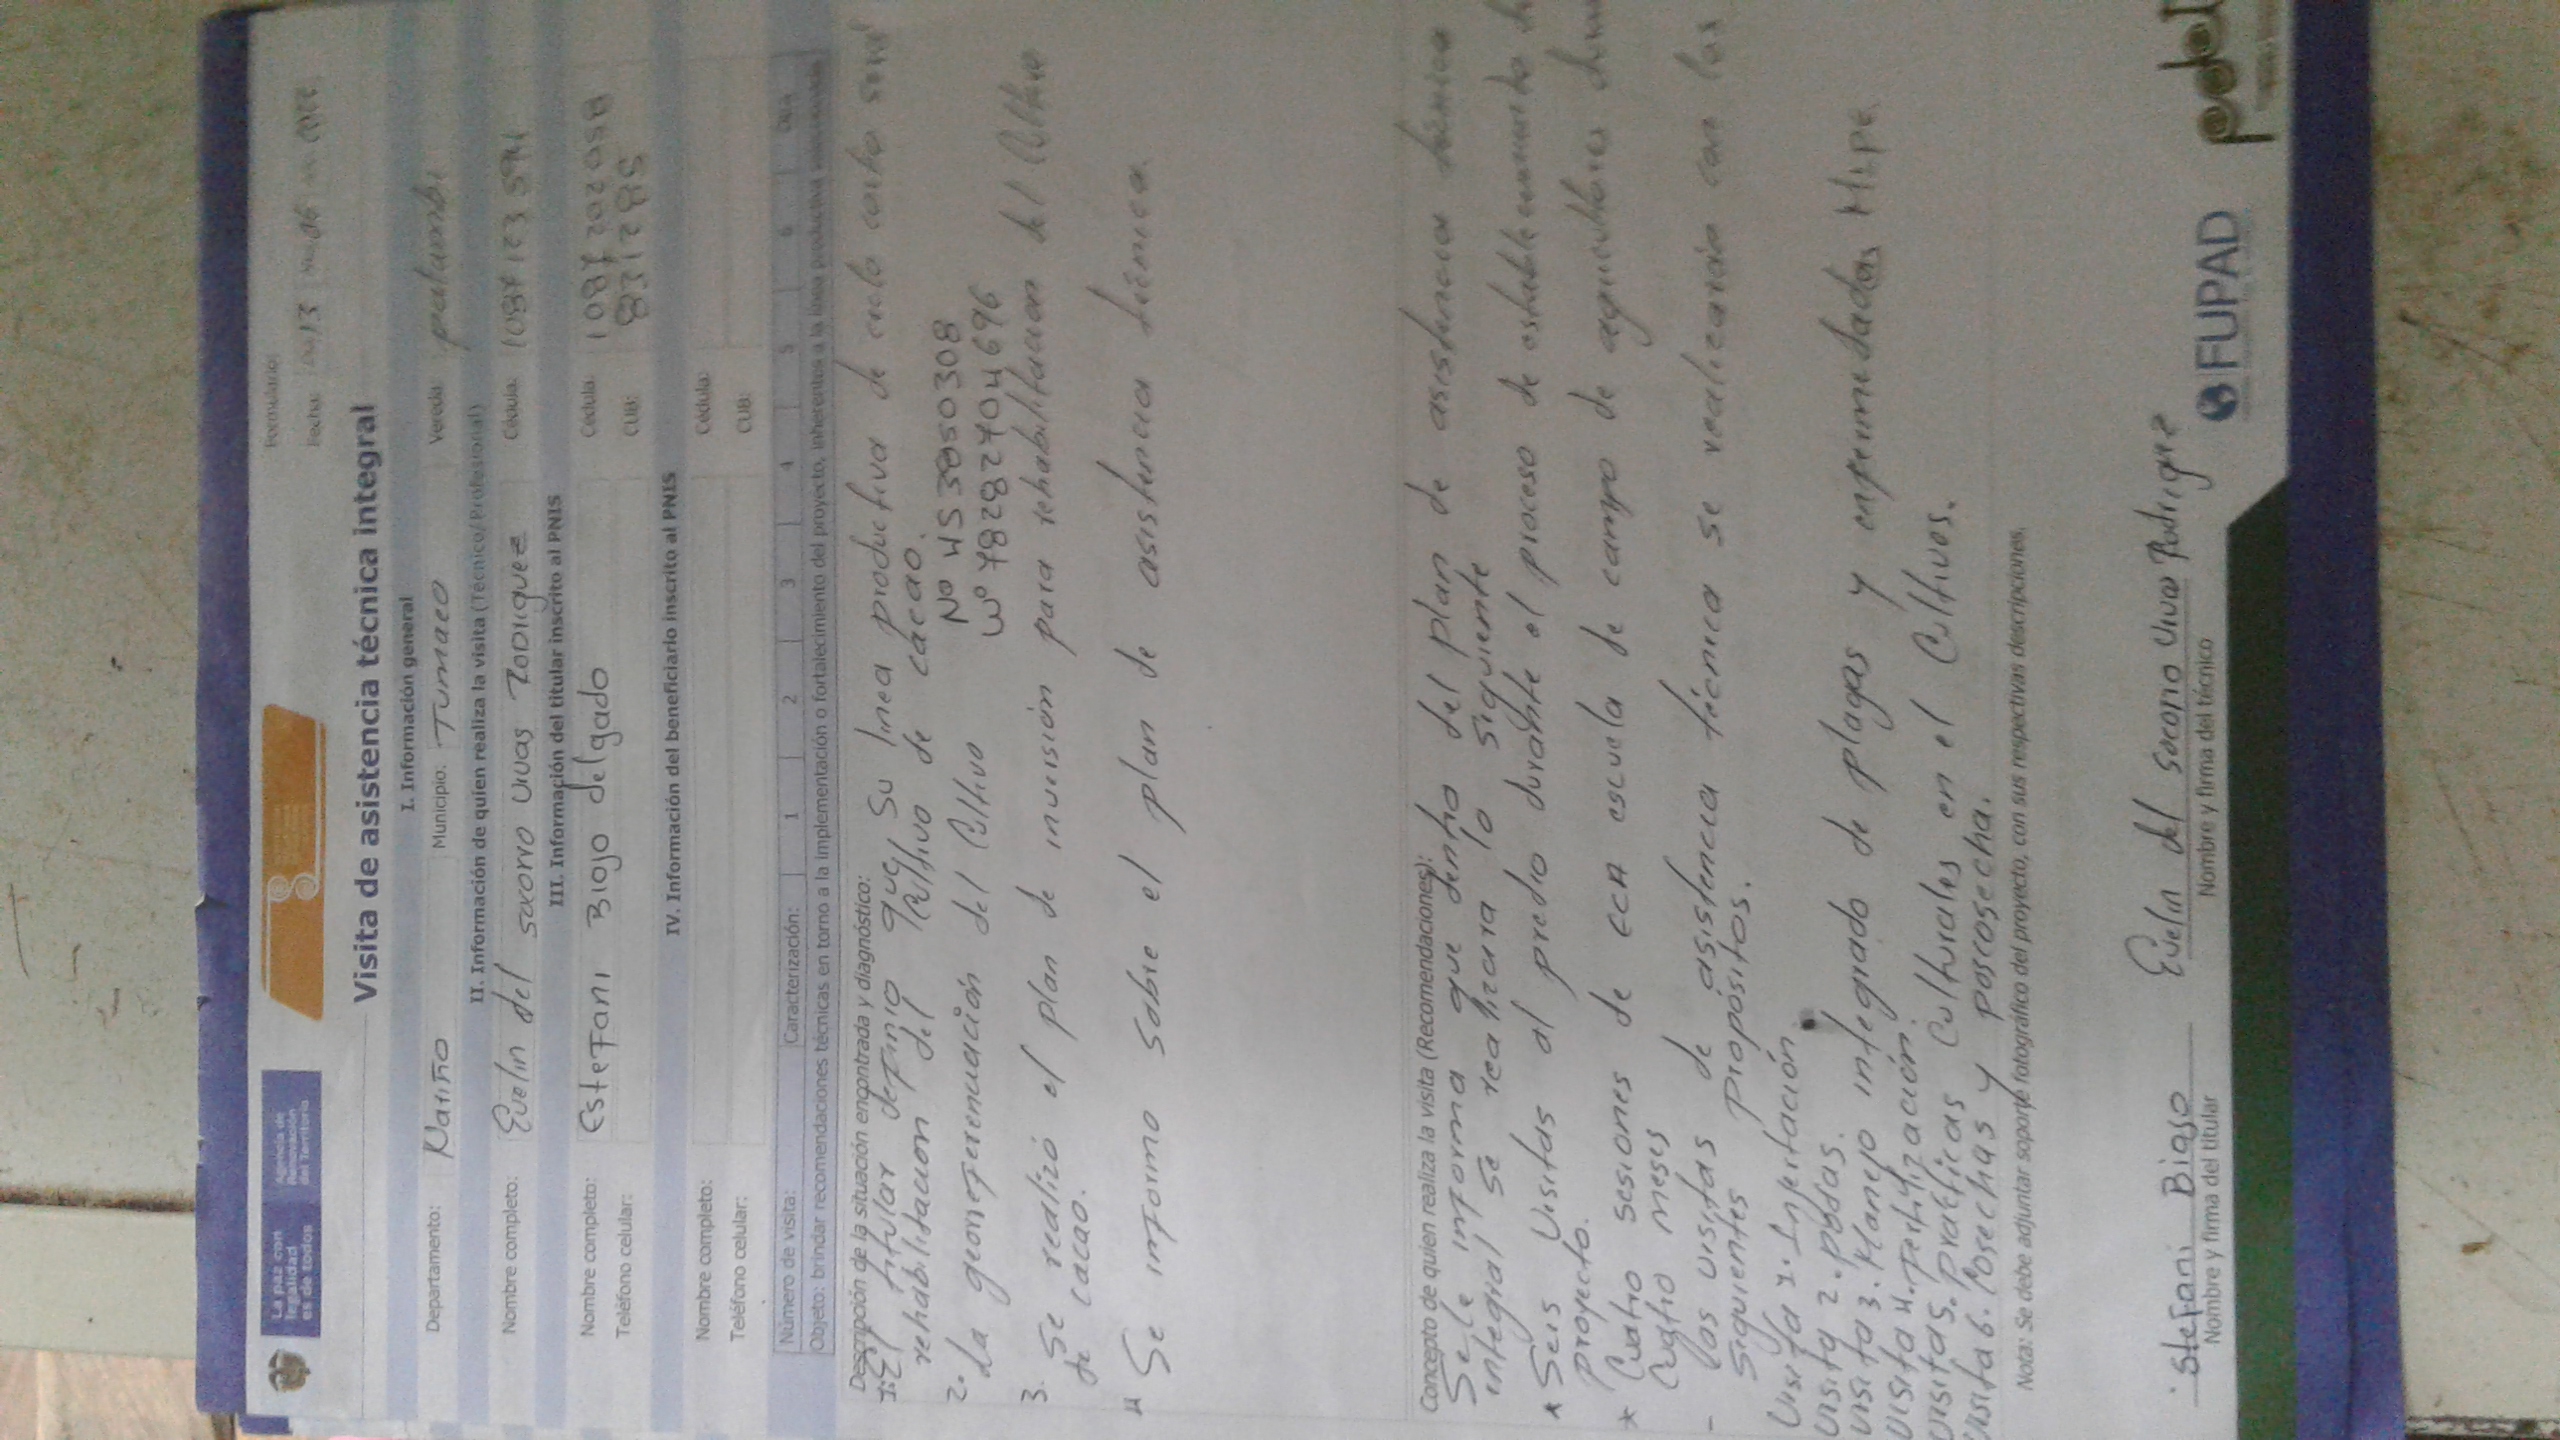 La paz con
legalidad
es de todos
Agencia de
Renovación
del Territorio
Formulario:
Fecha: 13 06
Visita de asistencia técnica integral
I. Información general
Departamento: Nariño Municipio: Tumaco Vereda: palambi
II. Información de quien realiza la visita (Técnico/Profesional)
Nombre completo: Evelin del socorro vivas Rodriguez Cédula: 1087123594
III. Información del titular inscrito al PNIS
Nombre completo: Estefani Biojo delgado Cédula: 1087202058
Teléfono celular: CUB: 8312785
IV. Información del beneficiario inscrito al PNIS
Nombre completo: Cédula:
Teléfono celular: CUB:
Número de visita: Caracterización: 1 2 3 4 5 6
Objeto: brindar recomendaciones técnicas en torno a la implementación o fortalecimiento del proyecto, inherentes a la línea productiva
Descripción de la situación encontrada y diagnóstico:
1. El titular definio que su linea productiva de ciclo corto será
rehabilitacion del Cultivo de cacao.
2. La georeferenciación del Cultivo
3. Se realizó el plan de inversión para rehabilitacion del Cultivo
de cacao.
4 Se informo sobre el plan de asistencia técnica.
Concepto de quien realiza la visita (Recomendaciones):
Se le informa que dentro del plan de asistencia técnica
integral se realizara lo siguiente
* Seis Visitas al predio durante el proceso de establecimiento
proyecto.
* Cuatro sesiones de ECA escuela de campo de agricultores
Cuatro meses
- las visitas de asistencia técnica se realizarán con los
siguientes Propósitos.
Visita 1. Injertación.
Visita 2. podas.
Visita 3. Manejo integrado de plagas y enfermedades MIPE.
Visita 4. Fertilización.
Visita 5. Prácticas Culturales en el Cultivos.
Visita 6. Cosechas y poscosecha.
Nota: Se debe adjuntar soporte fotográfico del proyecto, con sus respectivas descripciones.
Stefani Biojo
Nombre y firma del titular
Evelin del socorro vivas Rodriguez
Nombre y firma del técnico
FUPAD